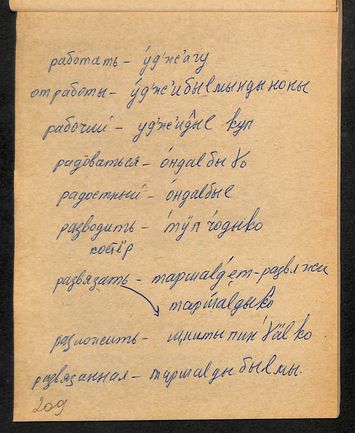 работать – у́дж'агу
от работы – у́дж'ибылмынды ноны
рабочий – удж'идыл куп
радоваться – о́ндалбыɣо
радостный – о́ндалбыl
разводить – тӱп чо́дыко
костёр
развязать – таршалдет – развяжи
таршалдыко
разложить –
развязанная – таршалды былмы.
209